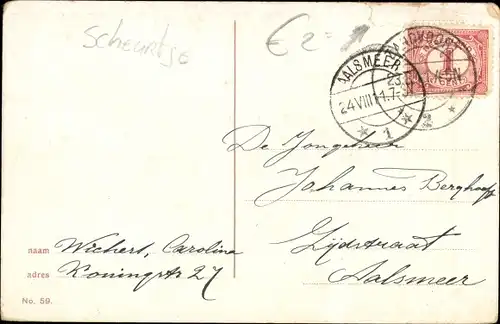 Scheurtje
€ 2=
AALSMEER
24 VIII 11 7-
1
2
1
De Jongeheer
Johannes Berghoef
Zijdstraat
Aalsmeer
naam Wichers, Carolina
adres Koningstr 27
No. 59.